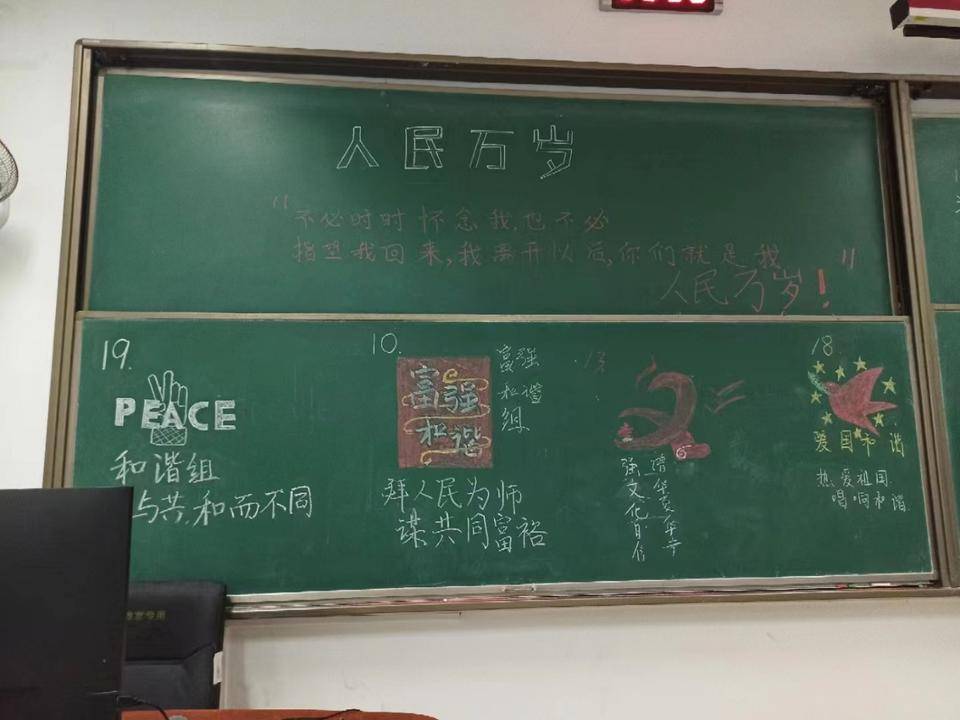 人民万岁
"不必时时怀念我,也不必
指望我回来,我离开以后,你们就是我"
人民万岁!
19.
PEACE
和谐组
与共,和而不同
10.
富强
和谐
富强
和谐
组
拜人民为师
谋共同富裕
强文化自信
增华夏
18
爱国和谐
热爱祖国
唱响和谐